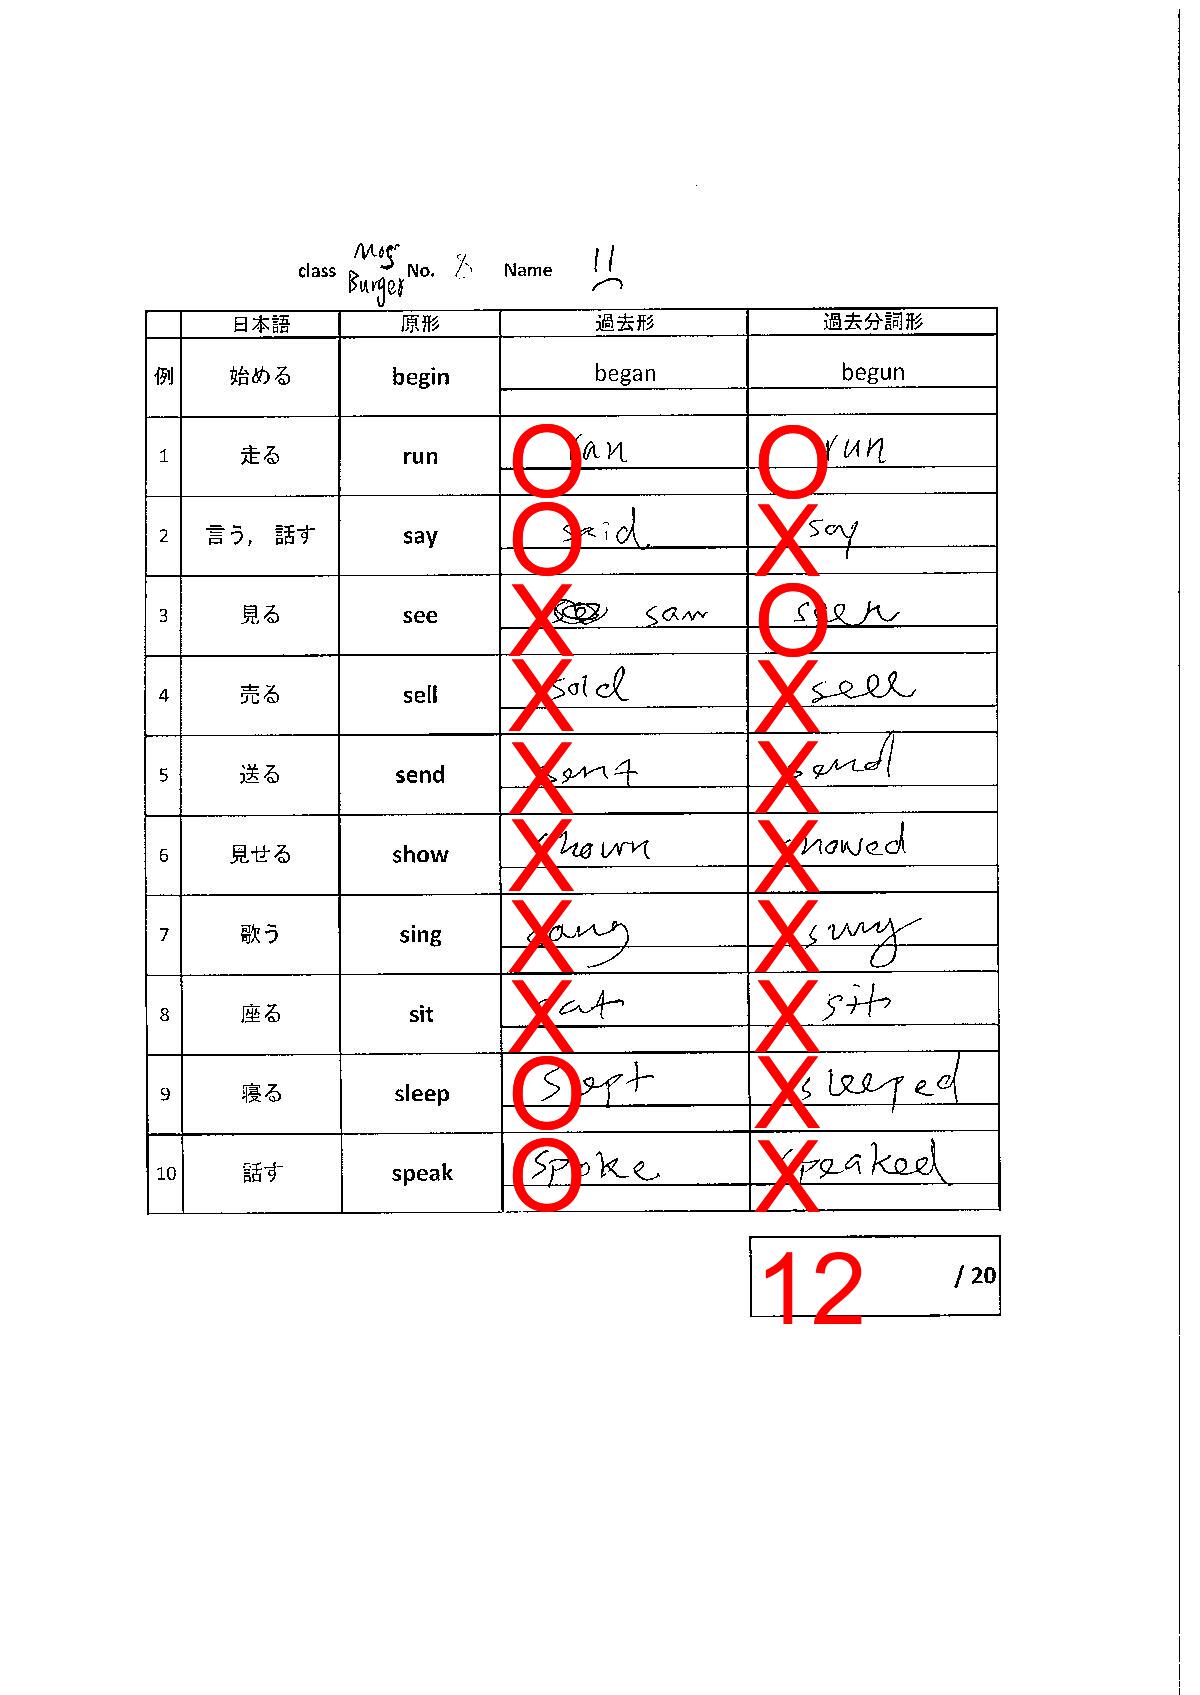 class Mos Burger No. 8 Name 11
日本語 原形 過去形 過去分詞形
例 始める begin began begun
1 走る run O ran O run
2 言う， 話す say O said X say
3 見る see X saw O seen
4 売る sell X sold X sell
5 送る send X sent X send
6 見せる show X shown X showed
7 歌う sing X sang X sung
8 座る sit X sat X sit
9 寝る sleep O slept X sleeped
10 話す speak O spoke X speaked
12 / 20